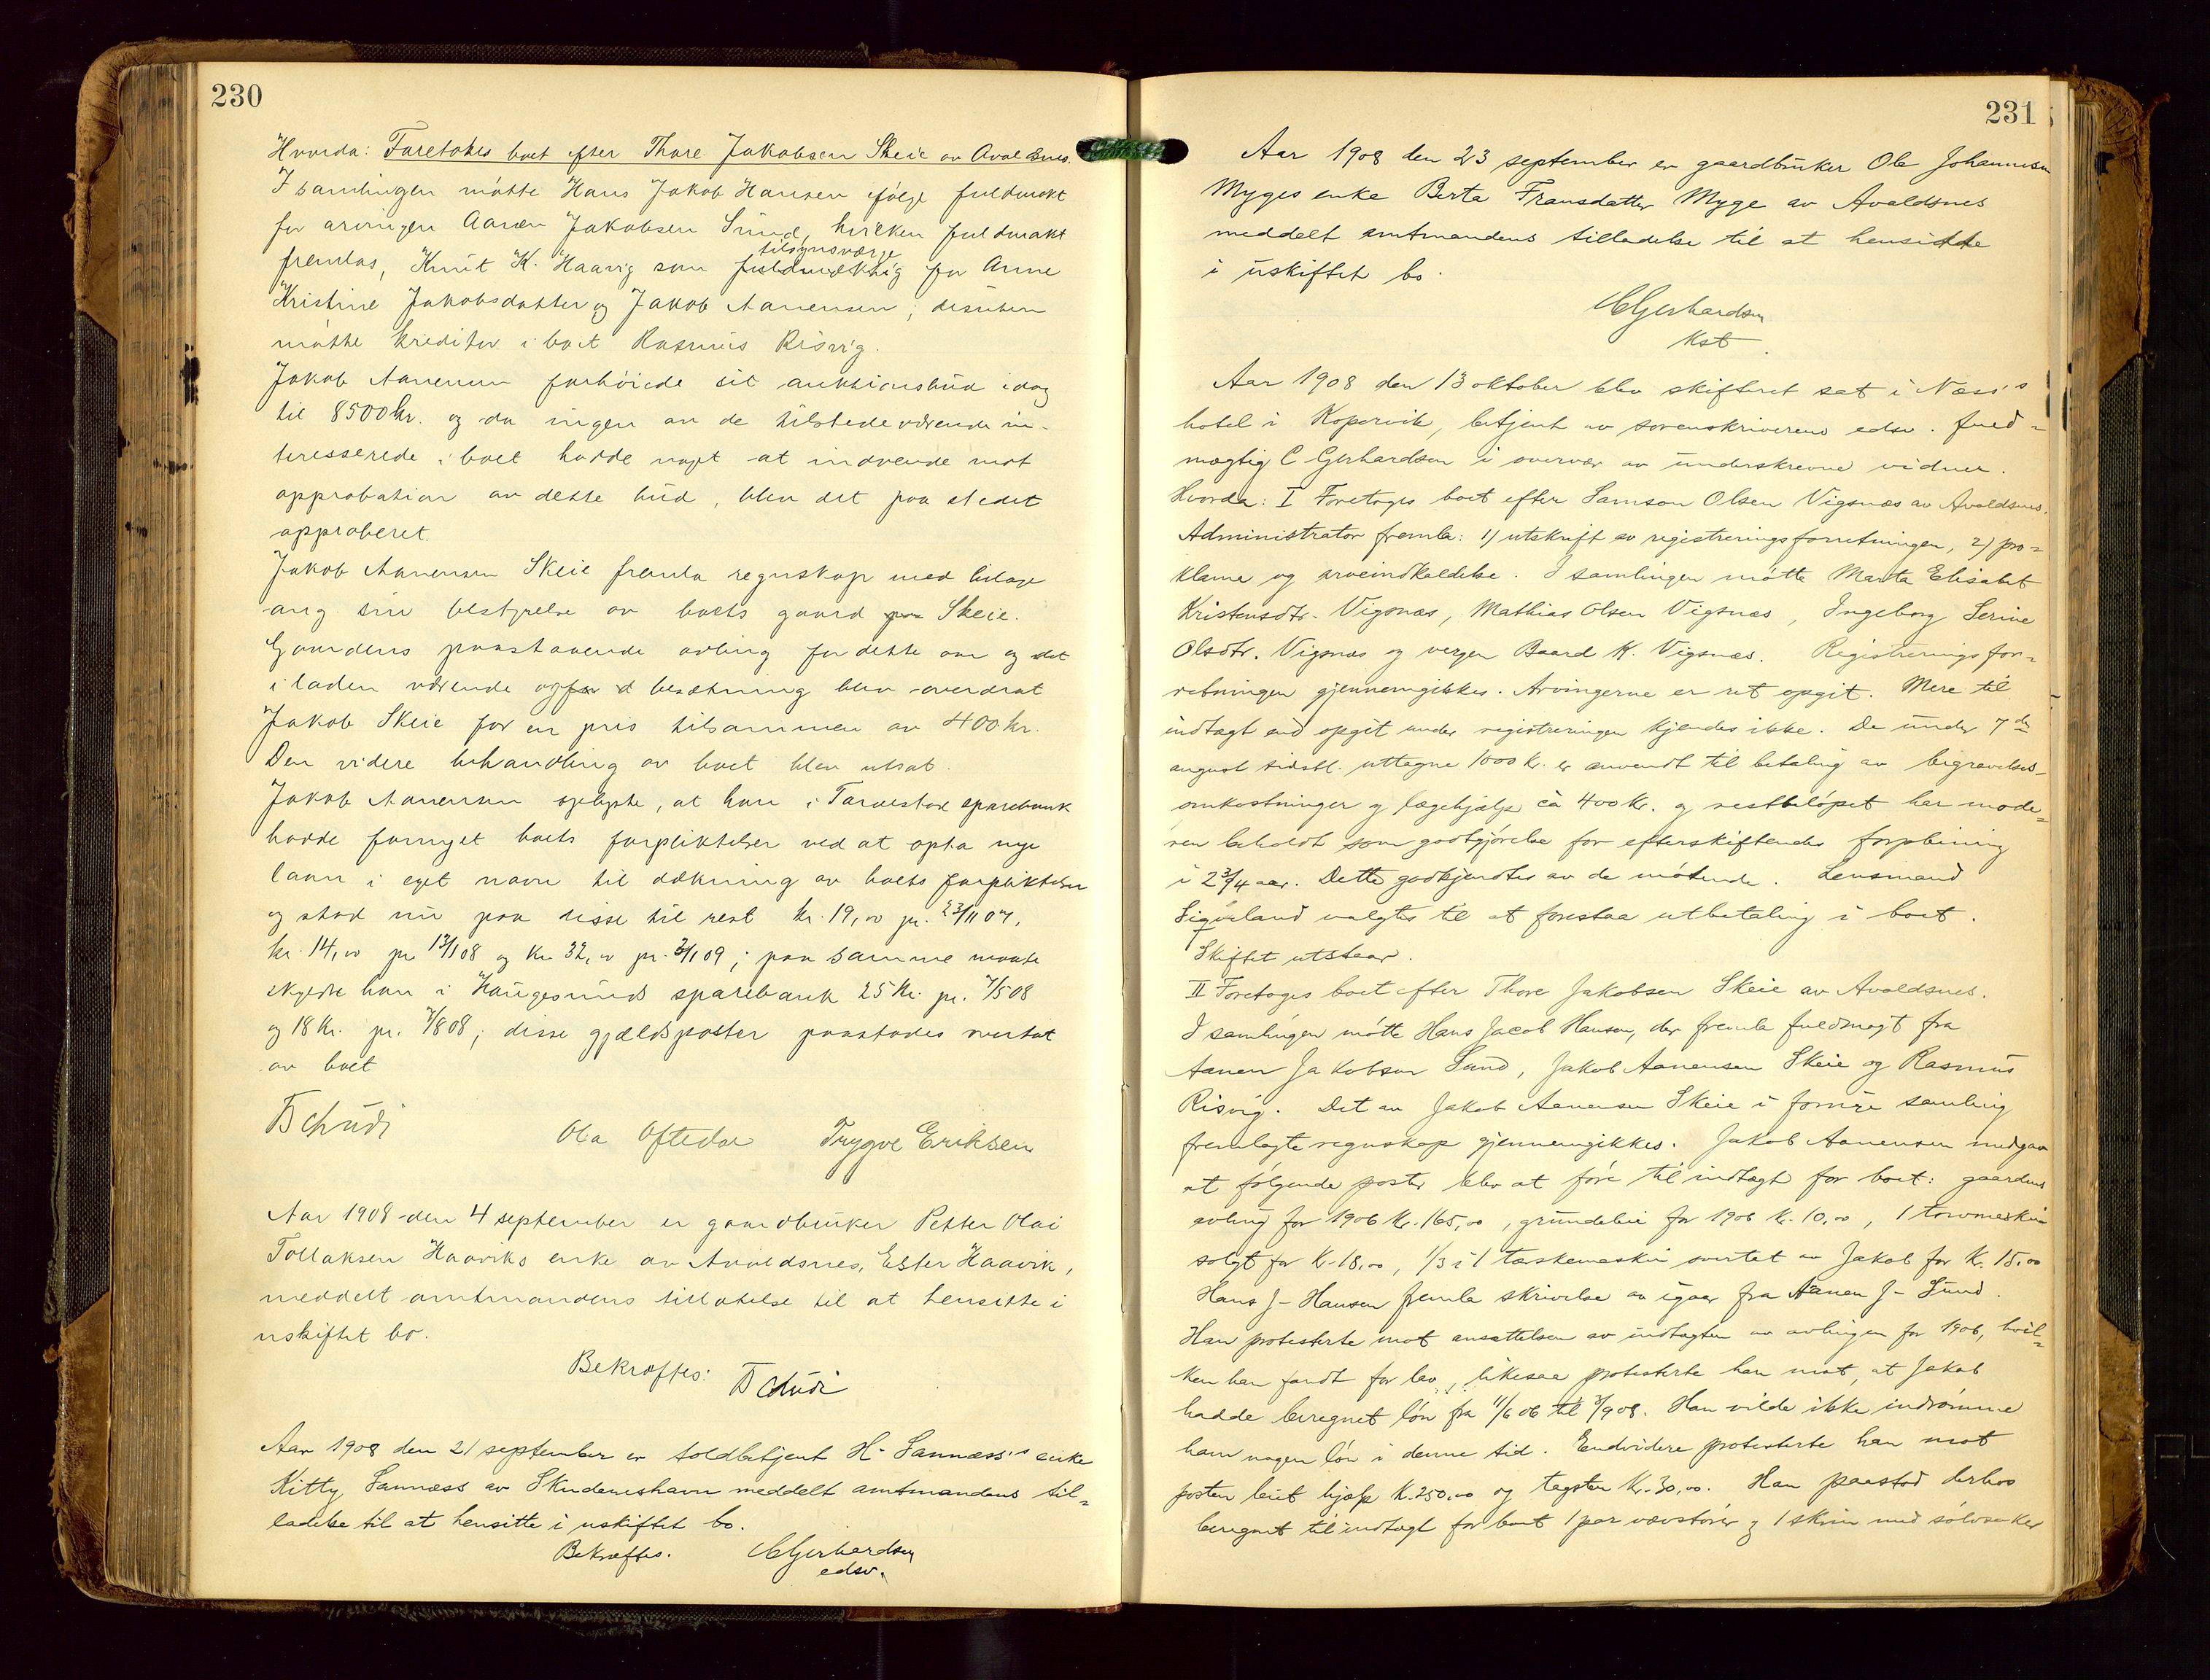 230
Hvorda: Foretokes boet efter Thore Jakobsen Skeie av Avaldsnes.
I samlingen møtte Hans Jakob Hansen ifølge fuldmakt
for arvingen Aanæn Jakobsen Sund, hvilken fuldmakt
tilsynsværge
fremlas, Knut K. Haavig som fuldmæktig for Anne
Kristine Jakobsdatter og Jakob Aanensen; desuten
møtte kreditor i boet Rasmus Risvig.
Jakob Aanensen forhøiede sit auktionsbud idag
til 8500 kr. og da ingen av de tilstedeværende in-
teresserede i boet hadde noget at indvende mot
approbation av dette bud, blev det paa stedet
approberet.
Jakob Aanensen Skeie fremla regnskap med bilage
ang. sin bestyrelse av boets gaard paa Skeie.
Gaardens paastaaende avling for dette aar og det
i laden værende besætning blev overdrat
Jakob Skeie for en pris tilsammen av 400 kr.
Den videre behandling av boet blev utsat.
Jakob Aanensen oplyste, at han i Torvestad sparebank
hadde fornyet boets forpliktelser ved at opta nye
laan i eget navn til dækning av boets forpliktelser
og stod nu paa disse til rest kr. 19,00 pr. 23/11 07,
kr. 14,00 pr 13/1 08 og kr 32,00 pr. 2/1 09; paa samme maate
skyldte han i Haugesunds sparebank 25 kr. pr. 7/5 08
og 18 kr. pr. 7/8 08; disse gjældsposter paastodes overtat
av boet
Tschudi
Ola Oftedal Trygve Eriksen
Aar 1908 den 4 september er gaardbruker Petter Olai
Tollaksen Haaviks enke av Avaldsnes, Ester Haavik,
meddelt amtmandens tillatelse til at hensitte i
uskiftet bo.
Bekræftes: Tschudi
Aar 1908 den 21 september er toldbetjent H. Sannæss's enke
Kitty Sannæss av Skudeneshavn meddelt amtmandens til-
ladelse til at hensitte i uskiftet bo.
Bekræftes. C Gerhardsen
edsv.
231
Aar 1908 den 23 september er gaardbruker Ole Johannesen
Myges enke Berta Fransdatter Myge av Avaldsnes
meddelt amtmandens tilladelse til at hensidde
i uskiftet bo.
C Gerhardsen
Kst.
Aar 1908 den 13 oktober blev skifteret sat i Næss's
hotel i Kopervik, betjent av sorenskriverens edsv. fuld-
mægtig C Gerhardsen i overvær av underskrevne vidner.
Hvorda: I Foretoges boet efter Samson Olsen Vigsnæs av Avaldsnes.
Administrator fremla: 1) utskrift av registreringsforretningen, 2) pro-
klama og arveindkaldelse. I samlingen møtte Marta Elisabet
Kristensdtr. Vigsnæs, Mathias Olsen Vigsnæs, Ingeborg Serine
Olsdtr. Vigsnæs og vergen Baard K. Vigsnæs. Registreringsfor-
retningen gjennemgikkes. Arvingerne er ret opgit. Mere til
indtægt end opgit under registreringen kjendes ikke. De under 7de
august sidstl. uttagne 1000 kr. er anvendt til betaling av begravelses-
omkostninger og lægehjælp ca 400 kr. og restbeløpet har mode-
ren beholdt som godtgjørelse for efterskiftendes forpleining
i 2 3/4 aar. Dette godkjendtes av de møtende. Lensmand
Sigerland valgtes til at forestaa utbetaling i boet.
Skiftet utstaar.
II Foretoges boet efter Thore Jakobsen Skeie av Avaldsnes.
I samlingen møtte Hans Jacob Hansen, der fremla fuldmagt fra
Aanen Jakobsen Sund, Jakob Aanensen Skeie og Rasmus
Risvig. Det av Jakob Aanensen Skeie i forrige samling
fremlagte regnskap gjennemgikkes. Jakob Aanensen medgav
at følgende poster blev at føre til indtægt for boet: gaardens
avling for 1906 kr. 165,00, grundleie for 1906 kr. 10,00, 1 torvmaskin
solgt for kr. 18,00, 1/3 i 1 tæskemaskin overtat av Jakob for kr. 15,00
Hans J. Hansen fremla skrivelse av igaar fra Aanen J. Sund.
Han protesterte mot ansættelsen av indtægten av avlingen for 1906, hvil-
ken han fandt for lav, likesaa protesterte han mot, at Jakob
hadde beregnet løn fra 11/6 06 til 3/9 08. Han vilde ikke indrømme
ham nogen løn i denne tid. Endvidere protesterte han mot
posten leiet hjælp kr. 250,00 og tagsten kr. 30,00. Han paastod derhos
beregnet til indtægt for boet 1 par vævstøier og 1 skrin med sølvsaker